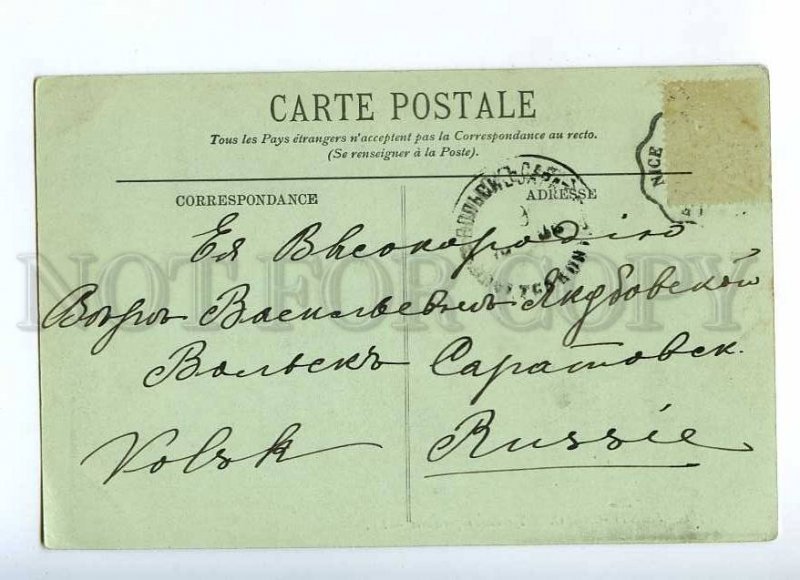 CARTE POSTALE
Tous les Pays étrangers n'acceptent pas la Correspondance au recto.
(Se renseigner à la Poste).
CORRESPONDANCE
ADRESSE
NICE
Ея Высокородію
Васильевнѣ
Вольскъ Саратовск.
Volsk Russie
NOT FOR COPY